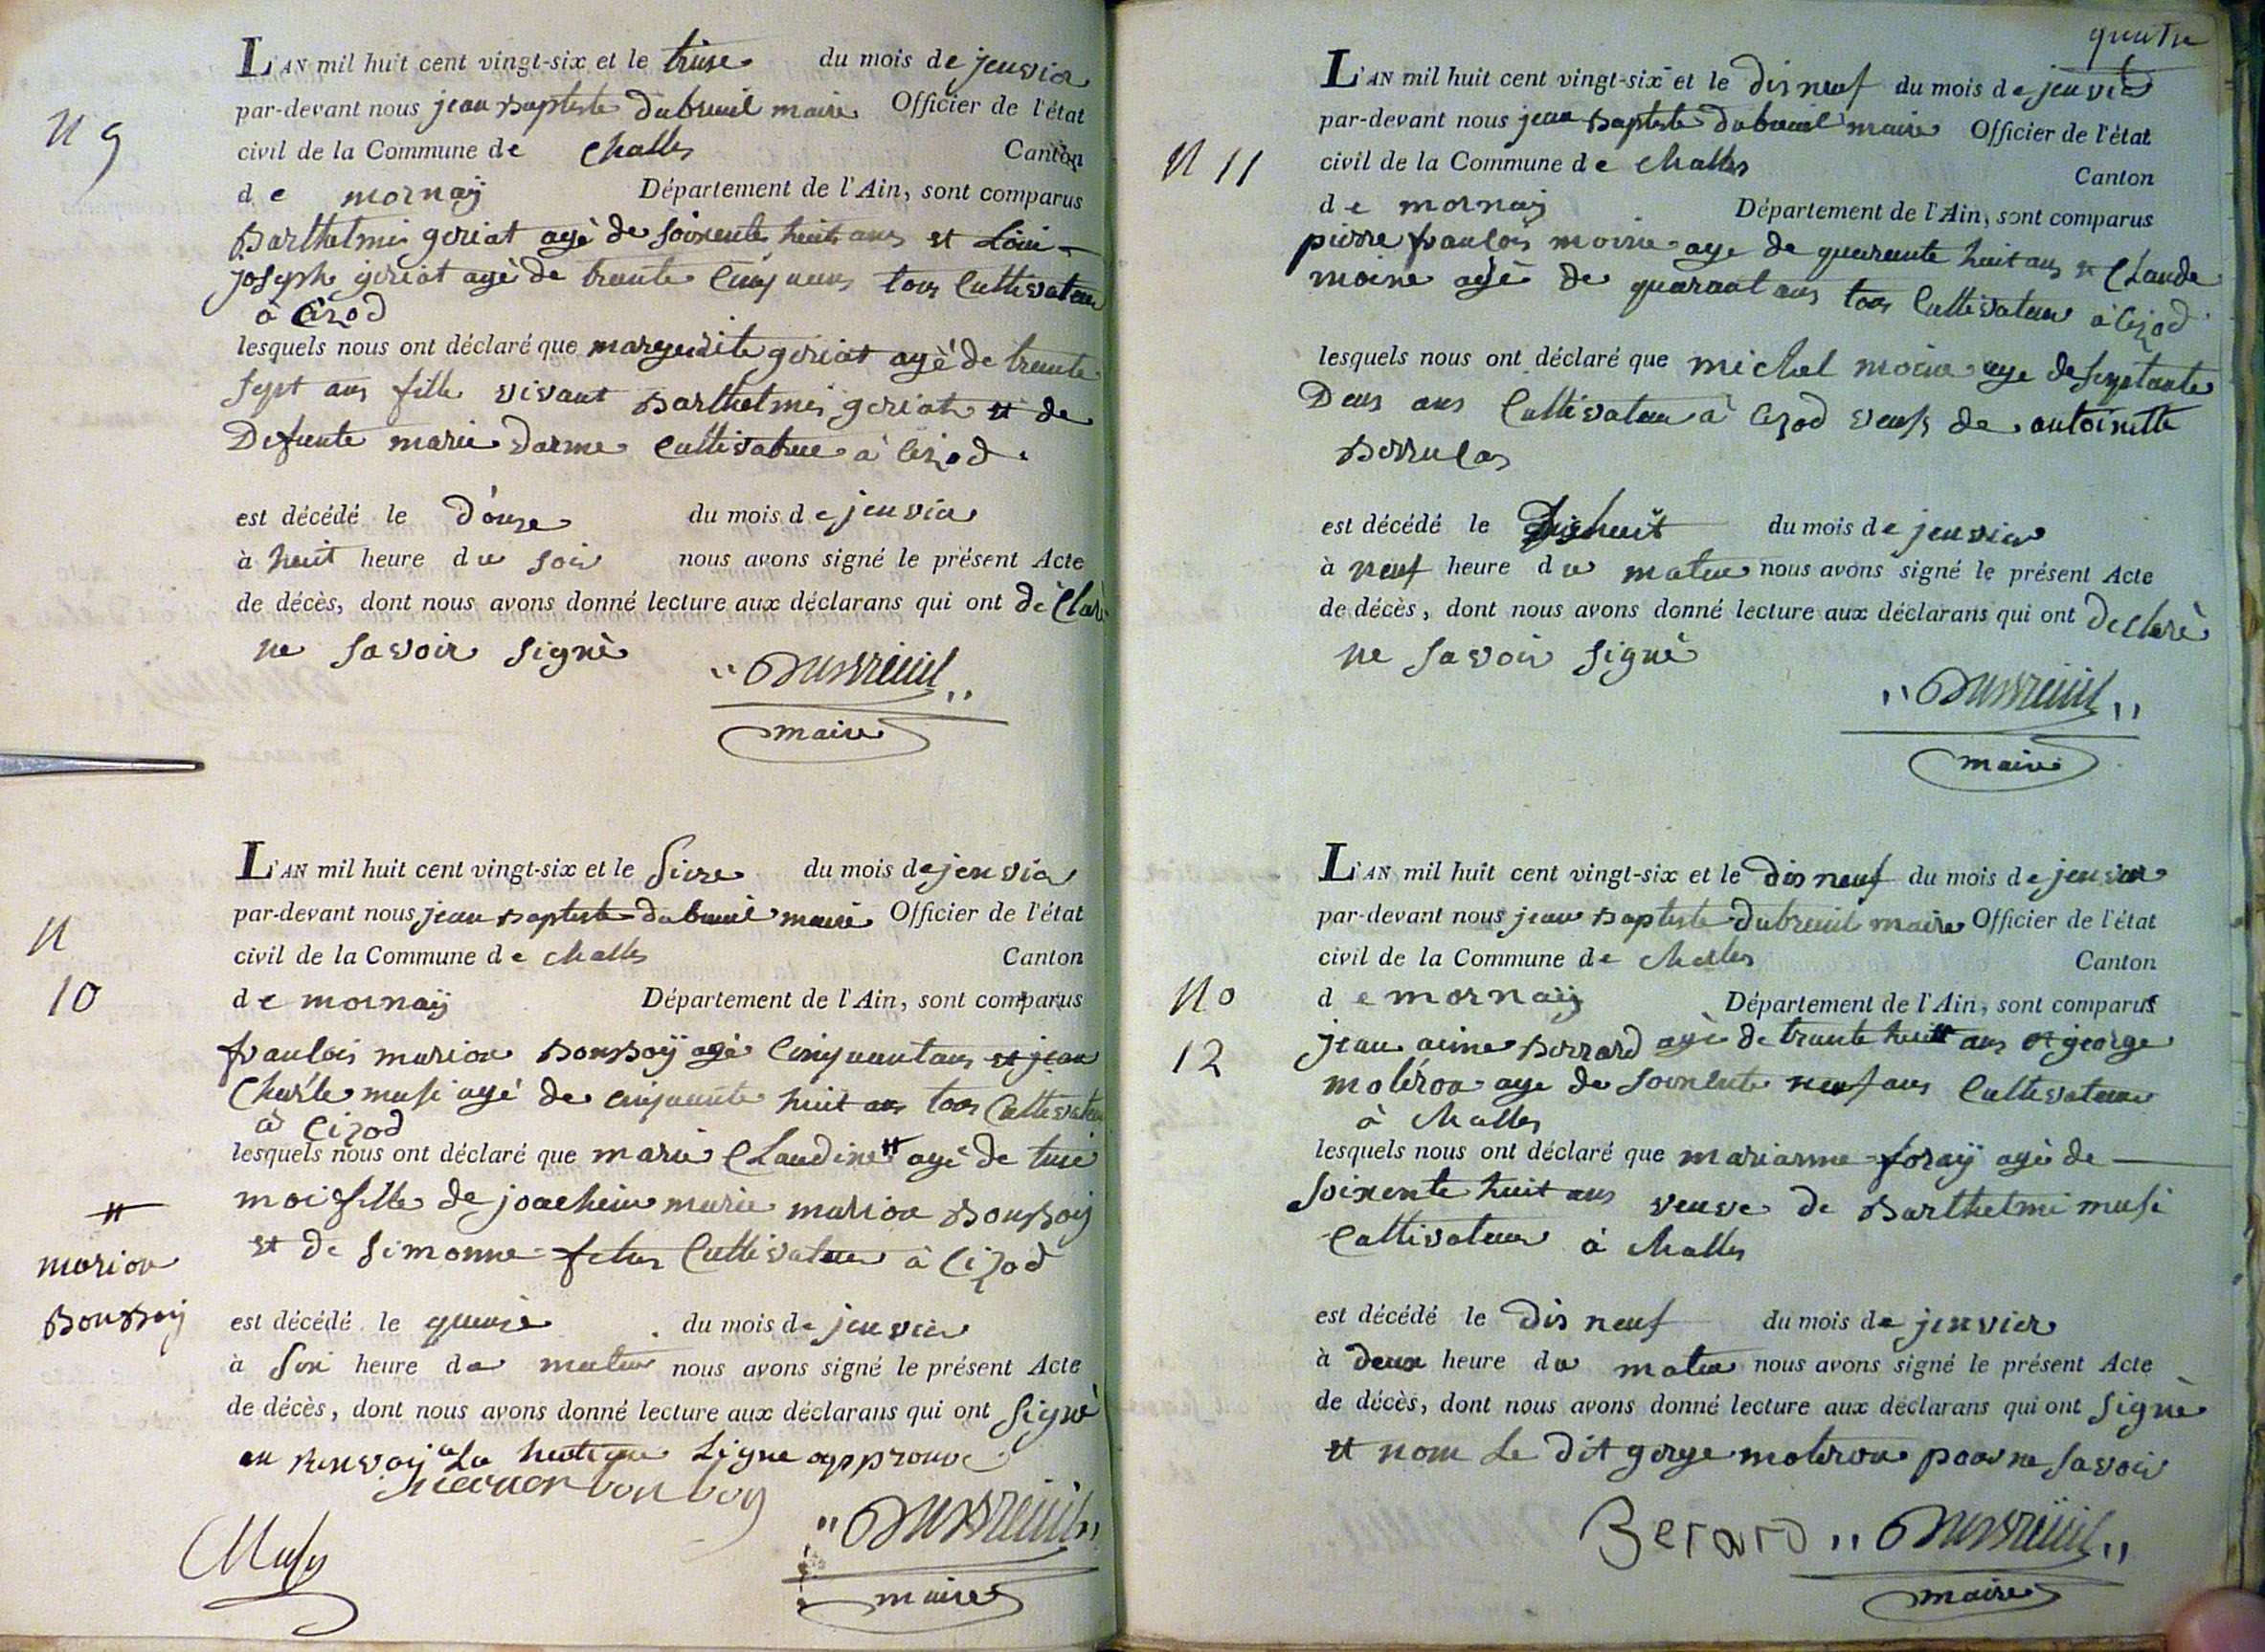 N 9
L'AN mil huit cent vingt-six et le treise du mois de jenvier
par-devant nous jean Baptiste dubreuil maire Officier de l'état
civil de la Commune de Challes Canton
de mornaÿ Département de l'Ain, sont comparus
Barthelmi geriat agè de soixente huit ans et Loui
joseph geriat agè de trente Cinq ans tous Cultivateur
à Cizod
lesquels nous ont déclaré que margeurite geriat agè de trente
sept ans fille vivant Barthelmi geriat et de
Defunte marie darme Cultivatrice à Cizod
est décédé le douze du mois de jenvier
à huit heure du soir nous avons signé le présent Acte
de décès, dont nous avons donné lecture aux déclarans qui ont dèClarè
ne savoir signè
Dubreuil
maire
N
10
L'AN mil huit cent vingt-six et le seize du mois de jenvier
par-devant nous jean Baptiste dubreuil maire Officier de l'état
civil de la Commune de Challes Canton
de mornaÿ Département de l'Ain, sont comparus
francois marion BonBoÿ agè Cinquant ans et jean
Charle musi agé de cinquante huit ans tous Cultivateur
à Cizod
lesquels nous ont déclaré que marie Claudine # agè de
moi fille de joachim marie marion BonBoÿ
et de Simonne Cultivateur à Cizod
#
marion
BonBoÿ
est décédé le quinze du mois de jenvier
à heure du matin nous avons signé le présent Acte
de décès, dont nous avons donné lecture aux déclarans qui ont signè
un Renvoy a La huitieme Ligne approuvé
Musy
Dubreuil
maire
quatre
N 11
L'AN mil huit cent vingt-six et le dis neuf du mois de jenvier
par-devant nous jean Baptiste dubreuil maire Officier de l'état
civil de la Commune de Challes Canton
de mornaÿ Département de l'Ain, sont comparus
pierre francois moine age de quarente huit ans et Claude
moine agè de quarant ans tous Cultivateur à Cizod
lesquels nous ont déclaré que michel moine age de septante
Deus ans Cultivateur à Cizod veuf de antoinette
est décédé le Dishuit du mois de jenvier
à neuf heure du matin nous avons signé le présent Acte
de décès, dont nous avons donné lecture aux déclarans qui ont declarè
ne savoir signè
Dubreuil
maire
No
12
L'AN mil huit cent vingt-six et le dis neuf du mois de jenvier
par-devant nous jean Baptiste dubreuil maire Officier de l'état
civil de la Commune de Challes Canton
de mornaÿ Département de l'Ain, sont comparus
jean aime Berrard agè de trente huit ans et george
moléron age de soixente neuf ans Cultivateur
à Challes
lesquels nous ont déclaré que marianne foraÿ agè de
soixente huit ans veuve de Barthelmi musi
Cultivateur à Challes
est décédé le dis neuf du mois de jenvier
à deux heure du matin nous avons signé le présent Acte
de décès, dont nous avons donné lecture aux déclarans qui ont signè
et nom Le dit gorge moleron pour ne savoir
Berard Dubreüil
maire